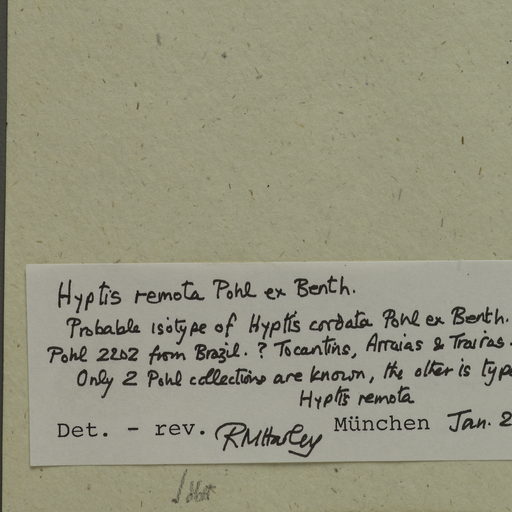 Hyptis remota Pohl ex Benth.
Probable isotype of Hyptis cordata Pohl ex Benth.
Pohl 2202 from Brazil. ? Tocantins, Arraias & Trairas.
Only 2 Pohl collections are known, the other is type
Hyptis remota
Det. - rev. RMHarley München Jan. 2